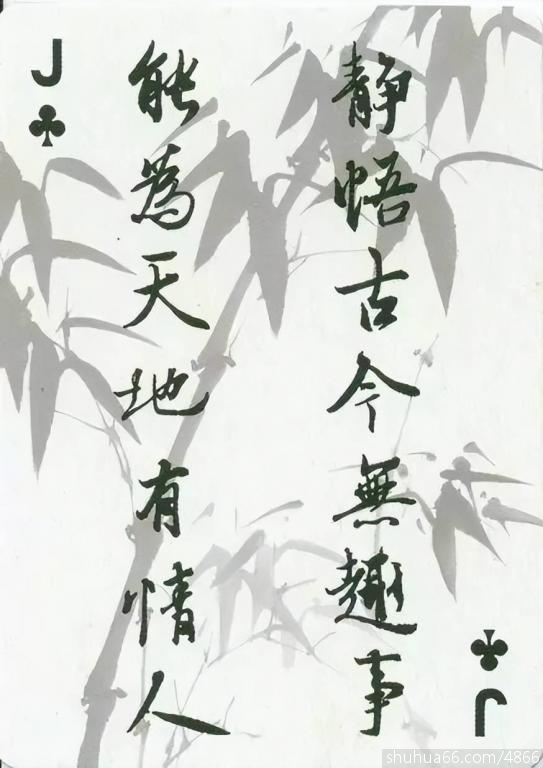 J
靜悟古今無趣事
能為天地有情人
J
shuhua66.com/4866